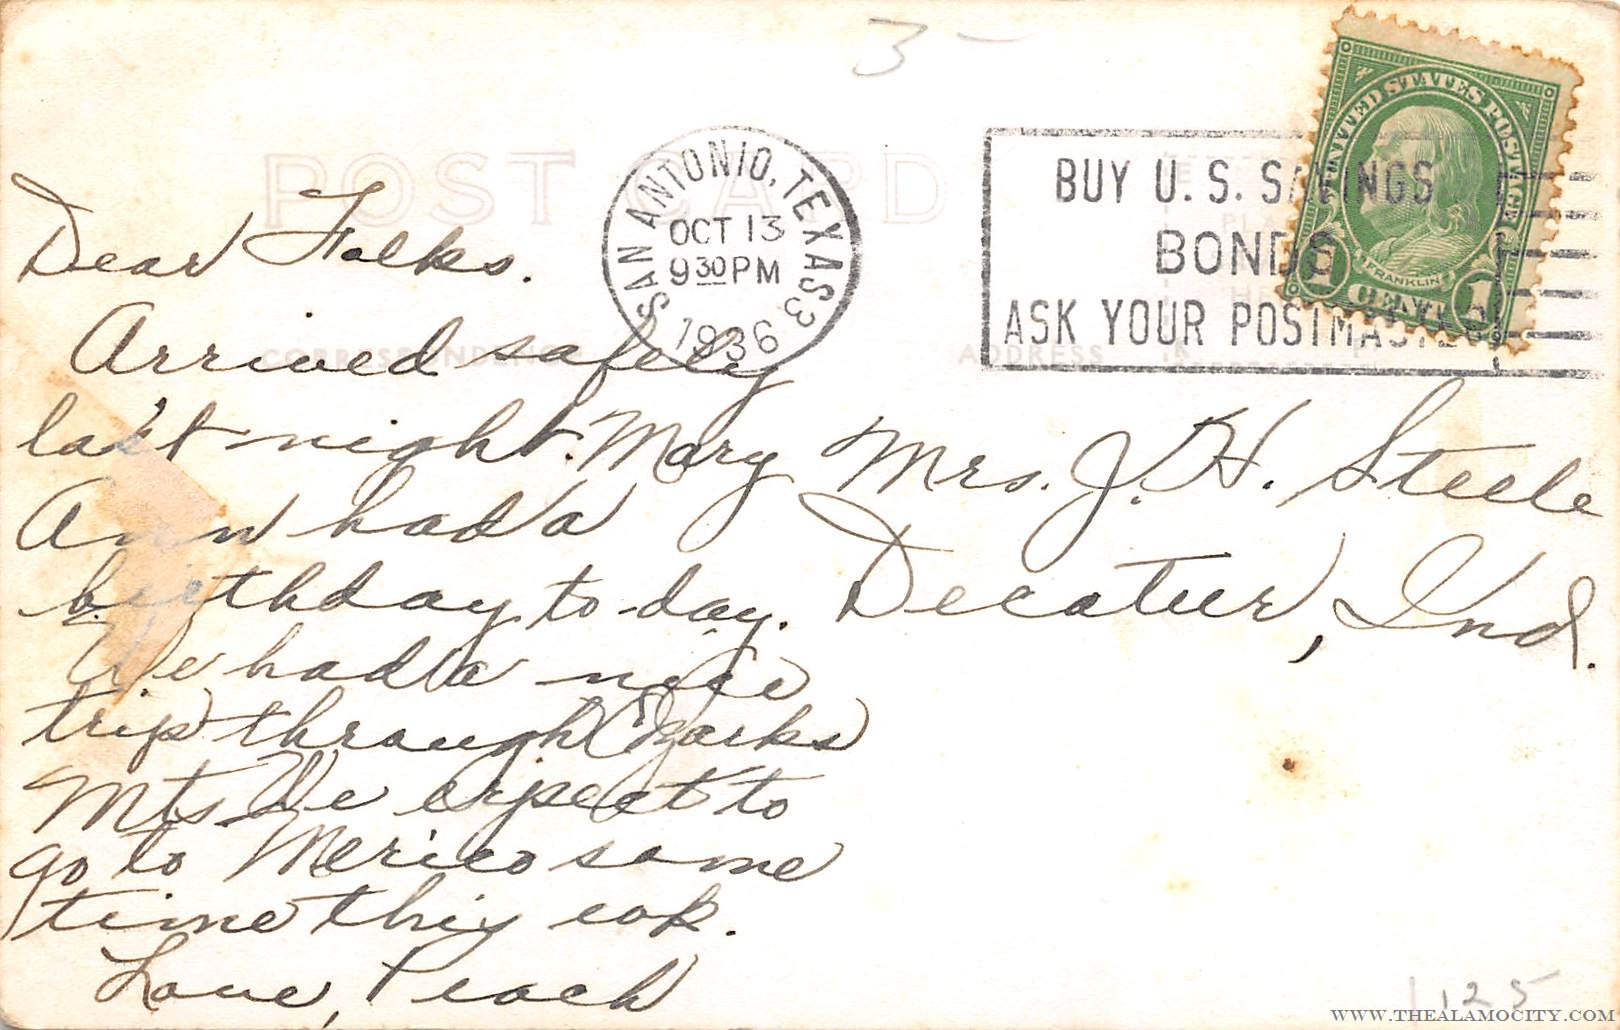 3 -
POST CARD
SAN ANTONIO, TEXAS 3
OCT 13
9 30 PM
1936
BUY U.S. SAVINGS
BONDS
ASK YOUR POSTMASTER
UNITED STATES POSTAGE
FRANKLIN
1 CENT 1
CORRESPONDENCE
ADDRESS
Dear Folks.
Arrived safely
last night. Mary
Ann had a
birthday to-day.
We had a nice
trip through Ozarks
Mts. We expect to
go to Mexico some
time this wk.
Love, Peach
Mrs. J. H. Steele
Decatur, Ind.
1.25
WWW.THEALAMOCITY.COM